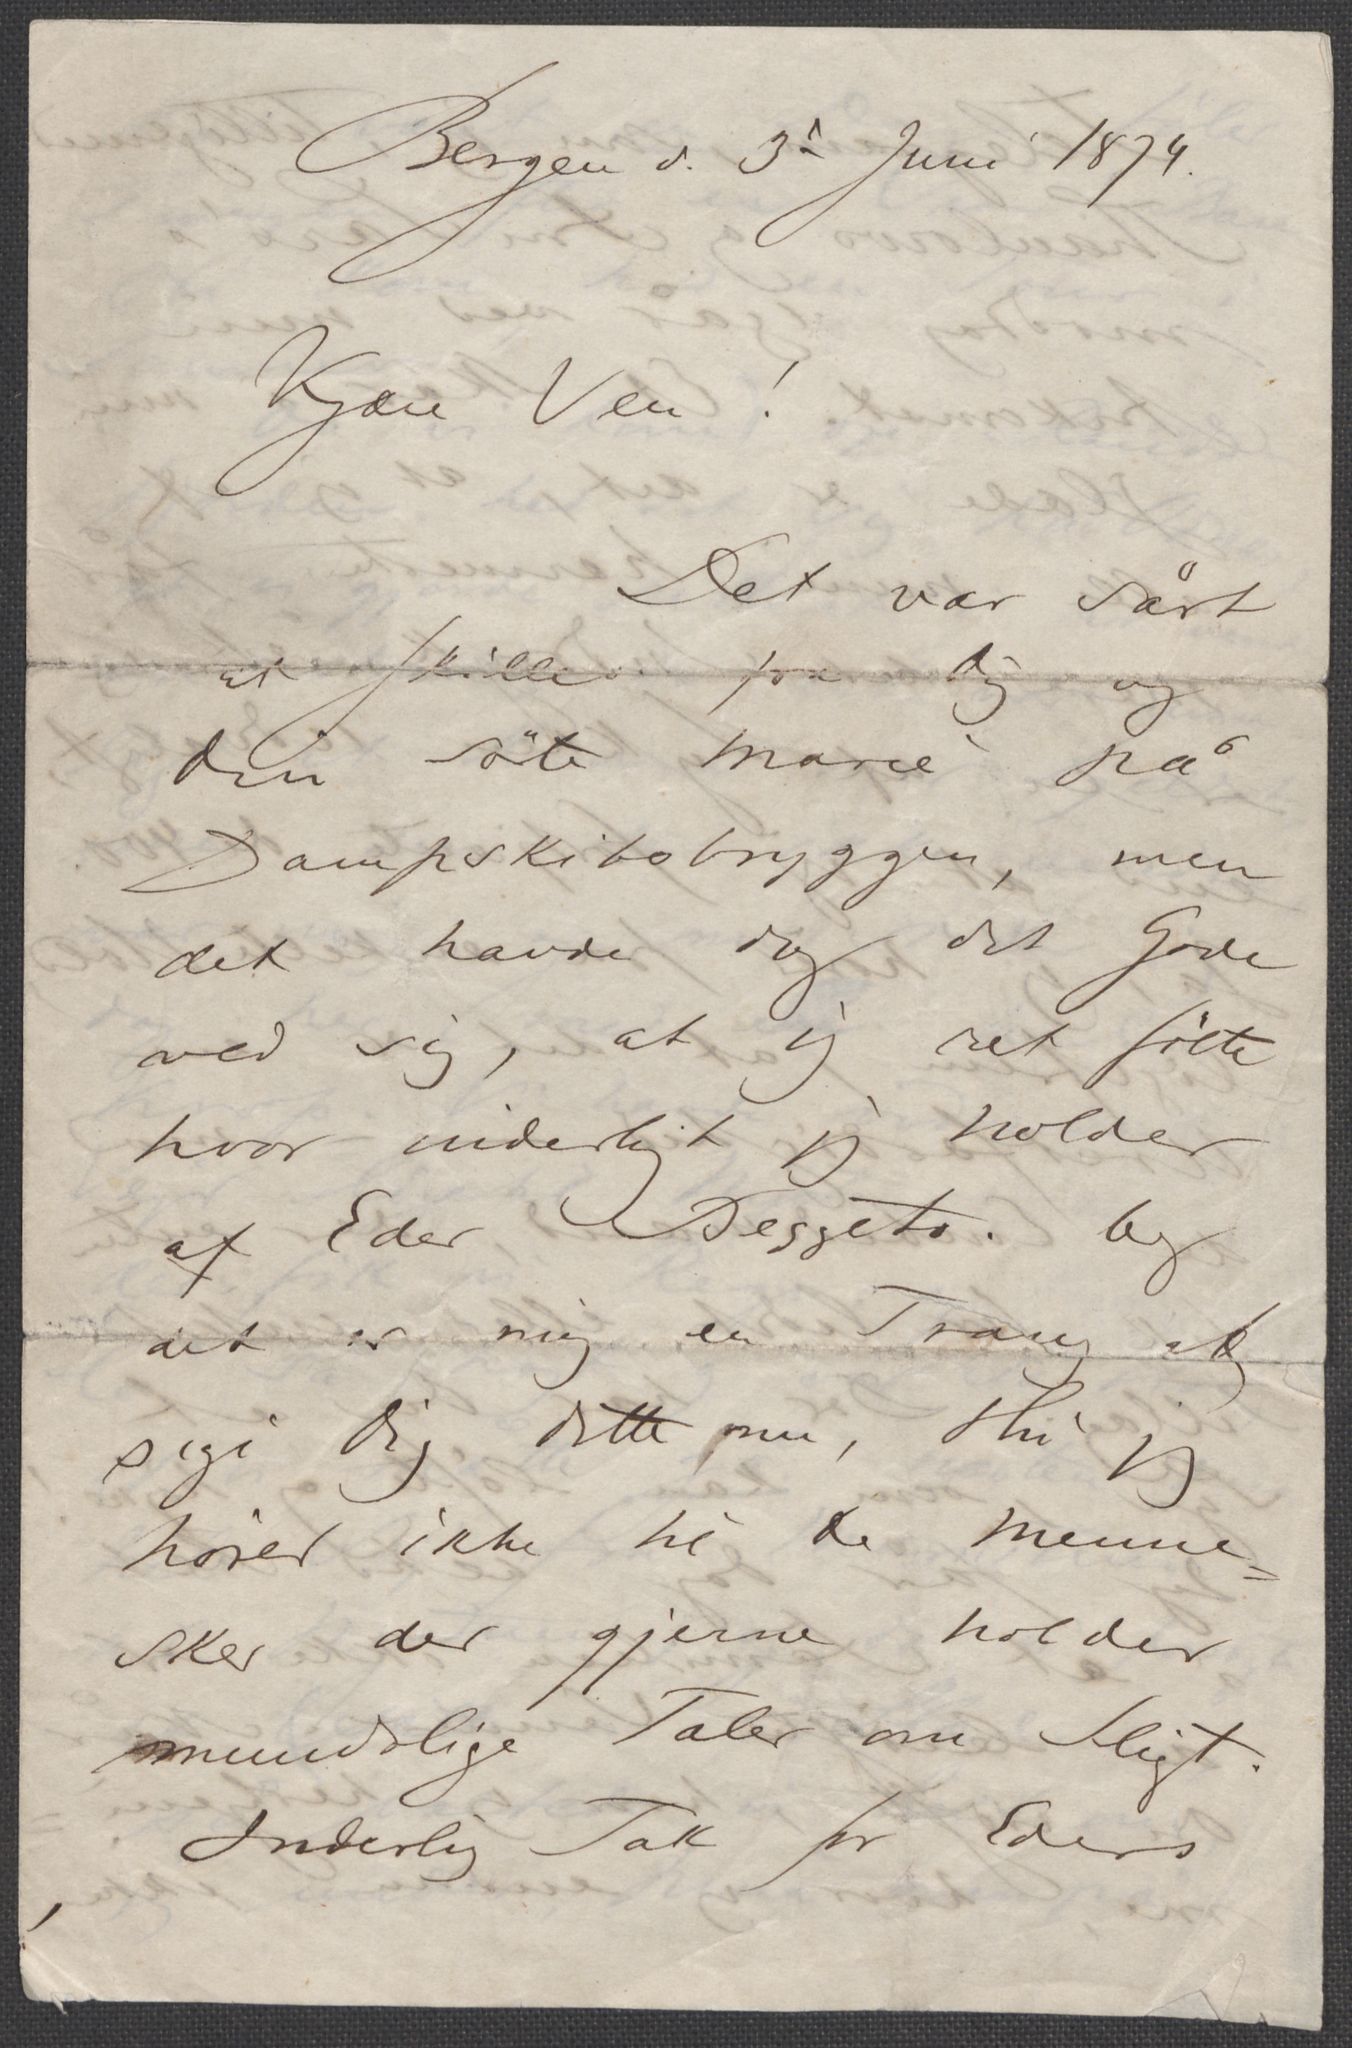 Bergen d. 3d Juni 1874.
Kjære Ven!
Det var sårt
at skilles fra Dig og
din söte Marie på
Dampskibsbryggen, men
det havde dog det Gode
ved sig, at jeg ret fölte
hvor inderligt jeg holder
af Eder Beggeto. Og
det er mig en Trang at
sige Dig dette nu, thi jeg
hører ikke til de Menne=
sker der gjerne holder
mundtlige Taler om Sligt.
Inderlig Tak for Eders